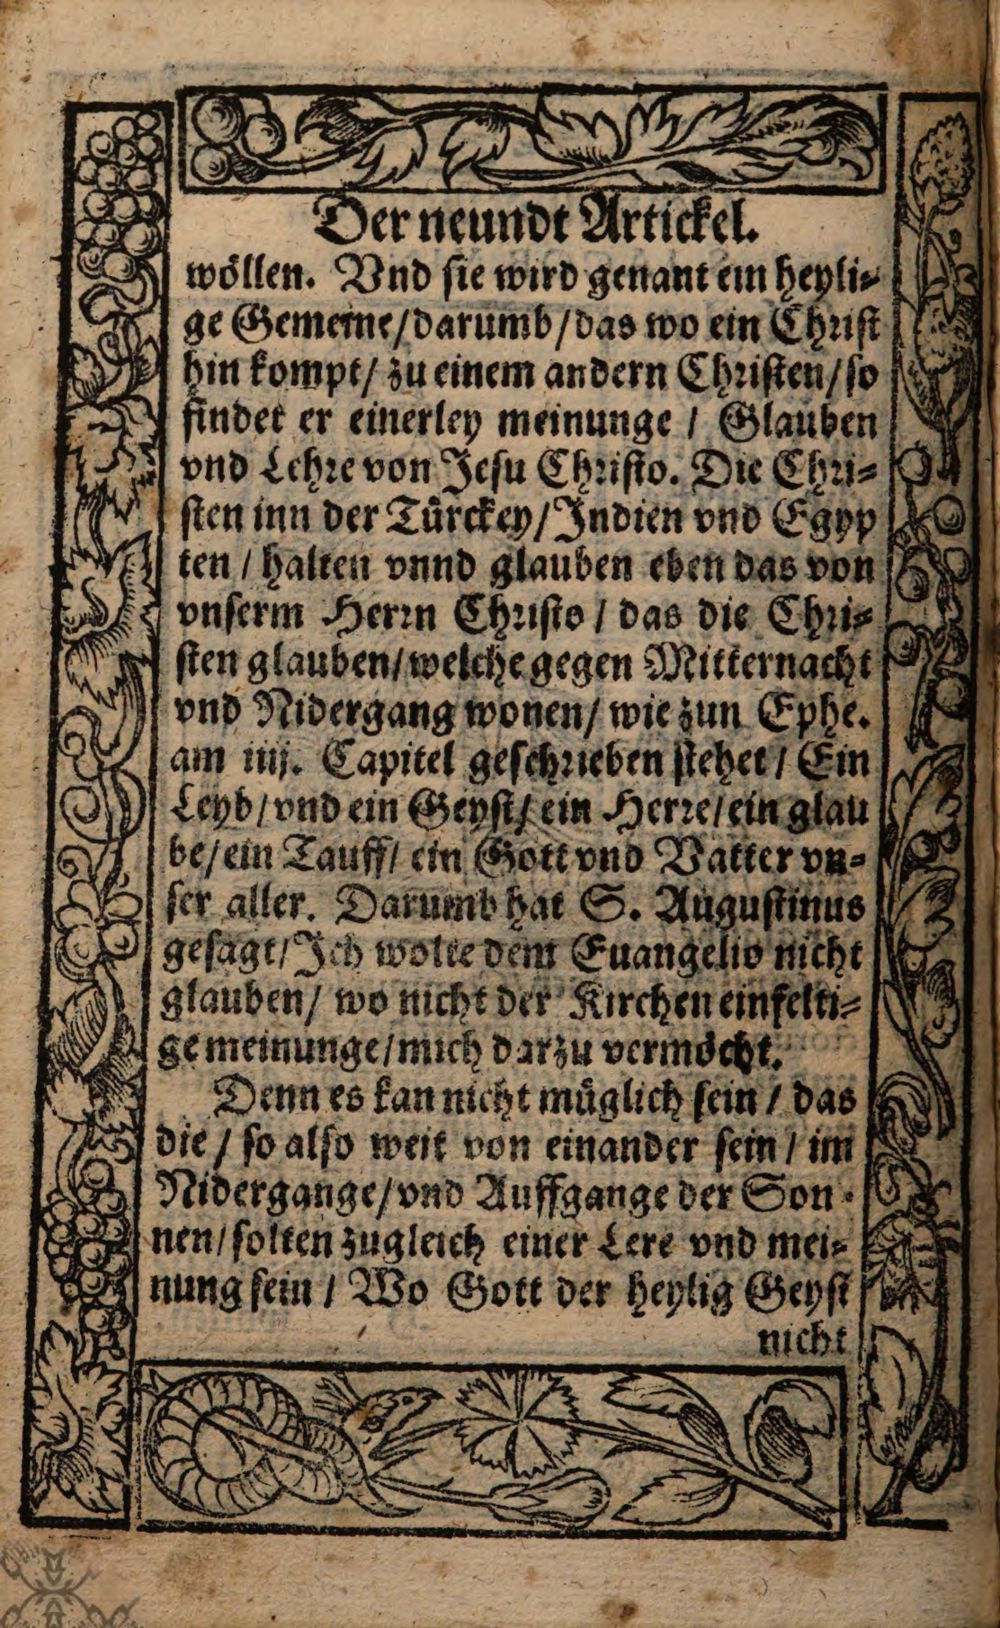 Der neundt Artickel.
wöllen. Vnd sie wird genant ein heyli⸗
ge Gemeine / darumb / das wo ein Christ
hin kompt / zu einem andern Christen / so
findet er einerley meinunge / Glauben
vnd Lehre von Jesu Christo. Die Chri⸗
sten inn der Türckey / Indien vnd Egyp
ten / halten vnnd glauben eben das von
vnserm Herrn Christo / das die Chri⸗
sten glauben / welche gegen Mitternacht
vnd Nidergang wonen / wie zun Ephe.
am iiij. Capitel geschrieben stehet / Ein
Leyb / vnd ein Geyst / ein Herre / ein glau
be / ein Tauff / ein Gott vnd Vatter vn⸗
ser aller. Darumb hat S. Augustinus
gesagt / Ich wolte dem Euangelio nicht
glauben / wo nicht der Kirchen einfelti⸗
ge meinunge / mich darzu vermöcht.
Denn es kan nicht müglich sein / das
die / so also weit von einander sein / im
Nidergange / vnd Auffgange der Son⸗
nen / solten zugleich einer Lere vnd mei⸗
nung sein / Wo Gott der heylig Geyst
nicht